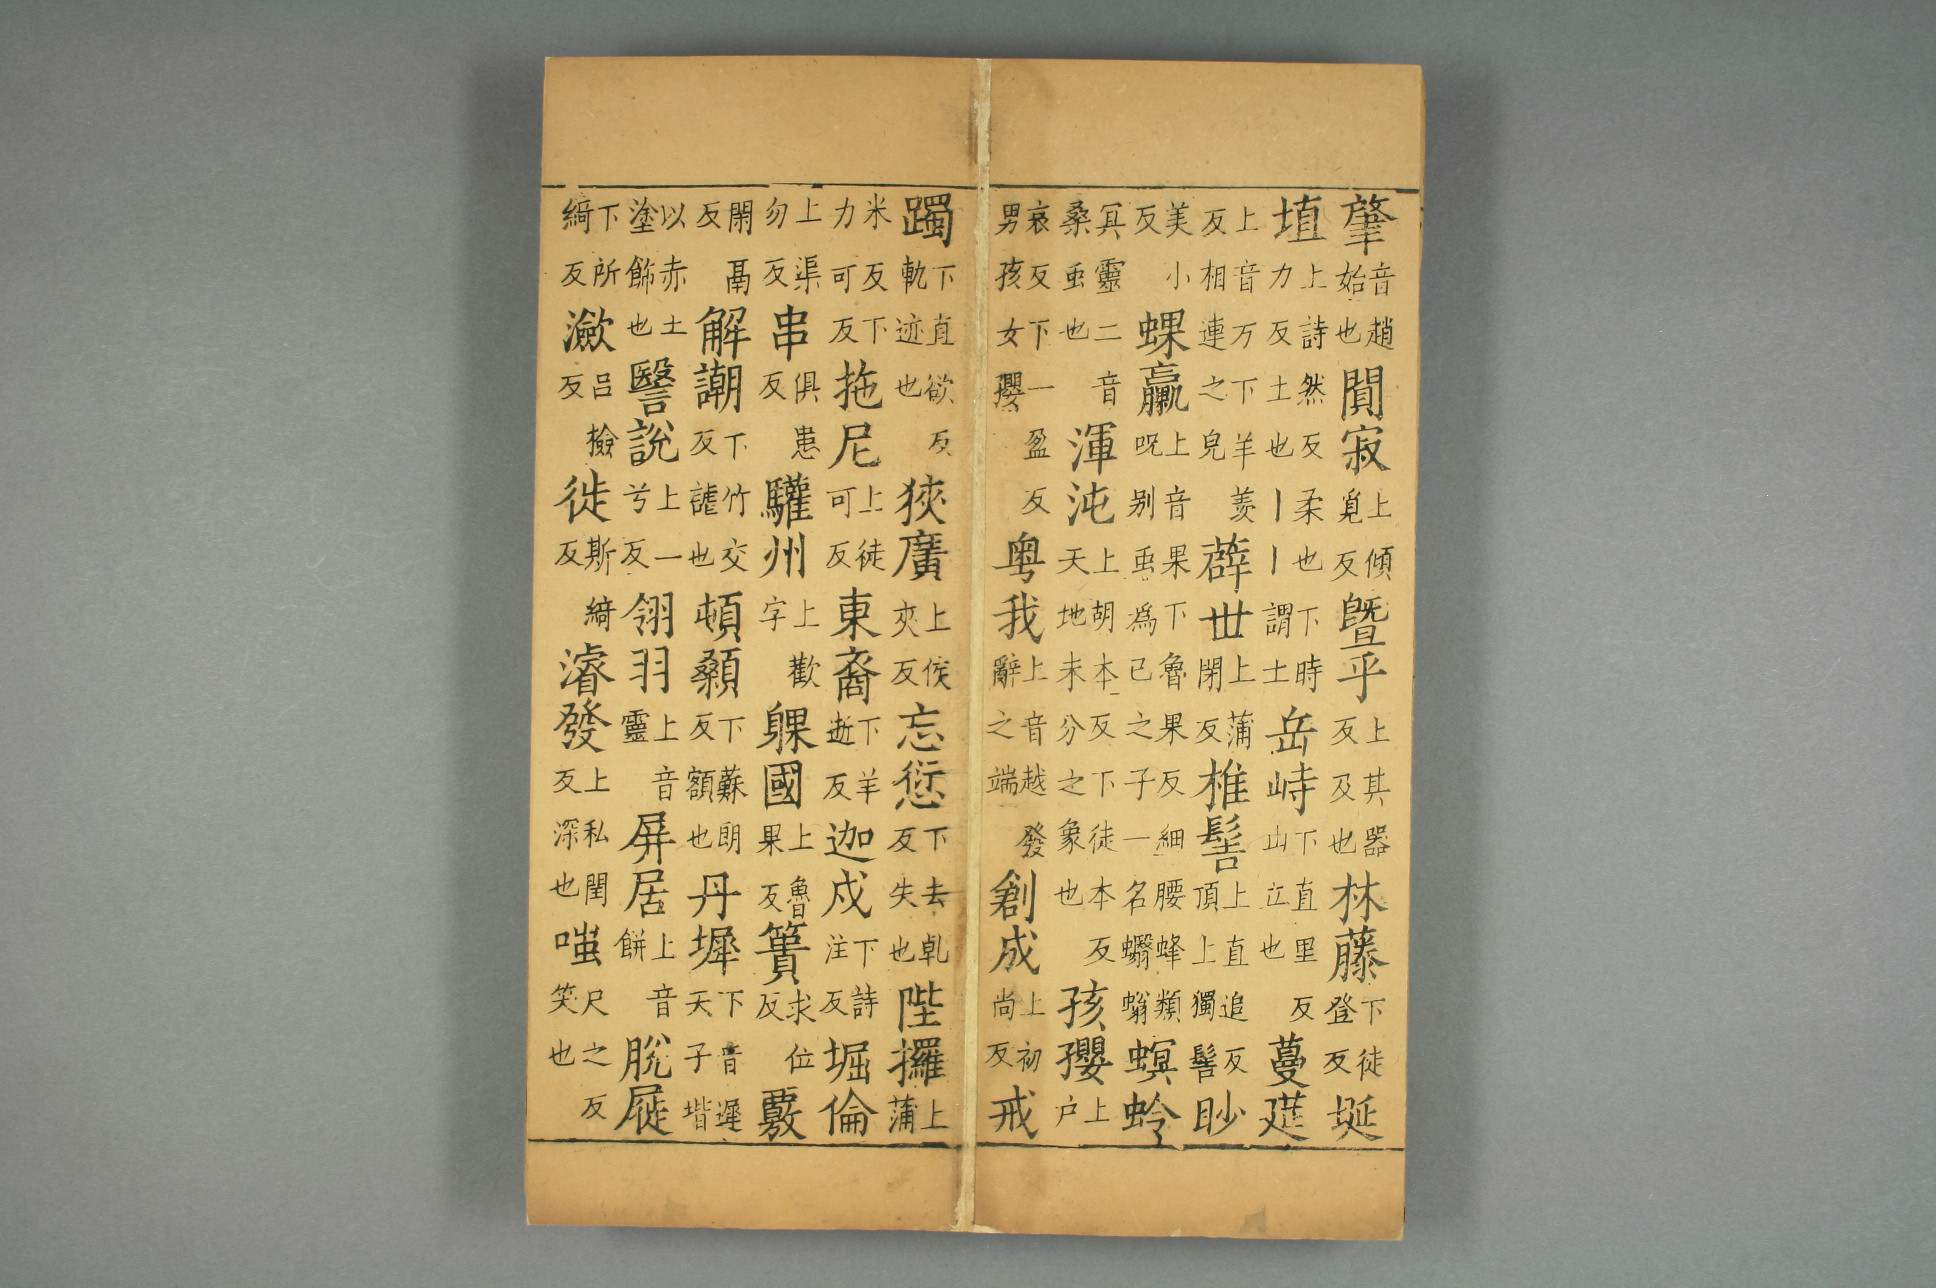 肇音趙始也闃寂上傾覓反曁乎上其器反及也林藤下徒登反埏
埴上詩然反柔也下時力反土也丨丨謂土岳峙下直里反山立也蔓莚
上音万下羊羡反相連之皃薜世上蒲閉反椎髻上直追反頂上獨髻眇
美小反蜾蠃上音果下魯果反細腰蜂類呪别䖝爲已之子一名蠮螉螟蛉
冥靈二音桑䖝也渾沌上胡本反下徒本反天地未分之象也孩孾上户
哀反下一盈反男孩女孾粤我上音越發辭之端創成上初尚反戒
躅下直欲反軌迹也狹廣上侯夾反忘愆下去乹反失也陛攞上蒲
米反下力可反拖尼上徒可反東裔下羊逝反迦戍下詩注反堀倫
上渠勿反串俱患反驩州上歡字躶國上魯果反簣求位反覈
閑鬲反解謿下竹交反謔也頓顙下蘇朗反額也丹墀下音遲天子堦
以赤土塗飾也說上一兮反翎羽上音靈屏居上音餅脫屣
下所綺反瀲吕檢反徙斯綺反濬發上私閏反深也嗤尺之反笑也